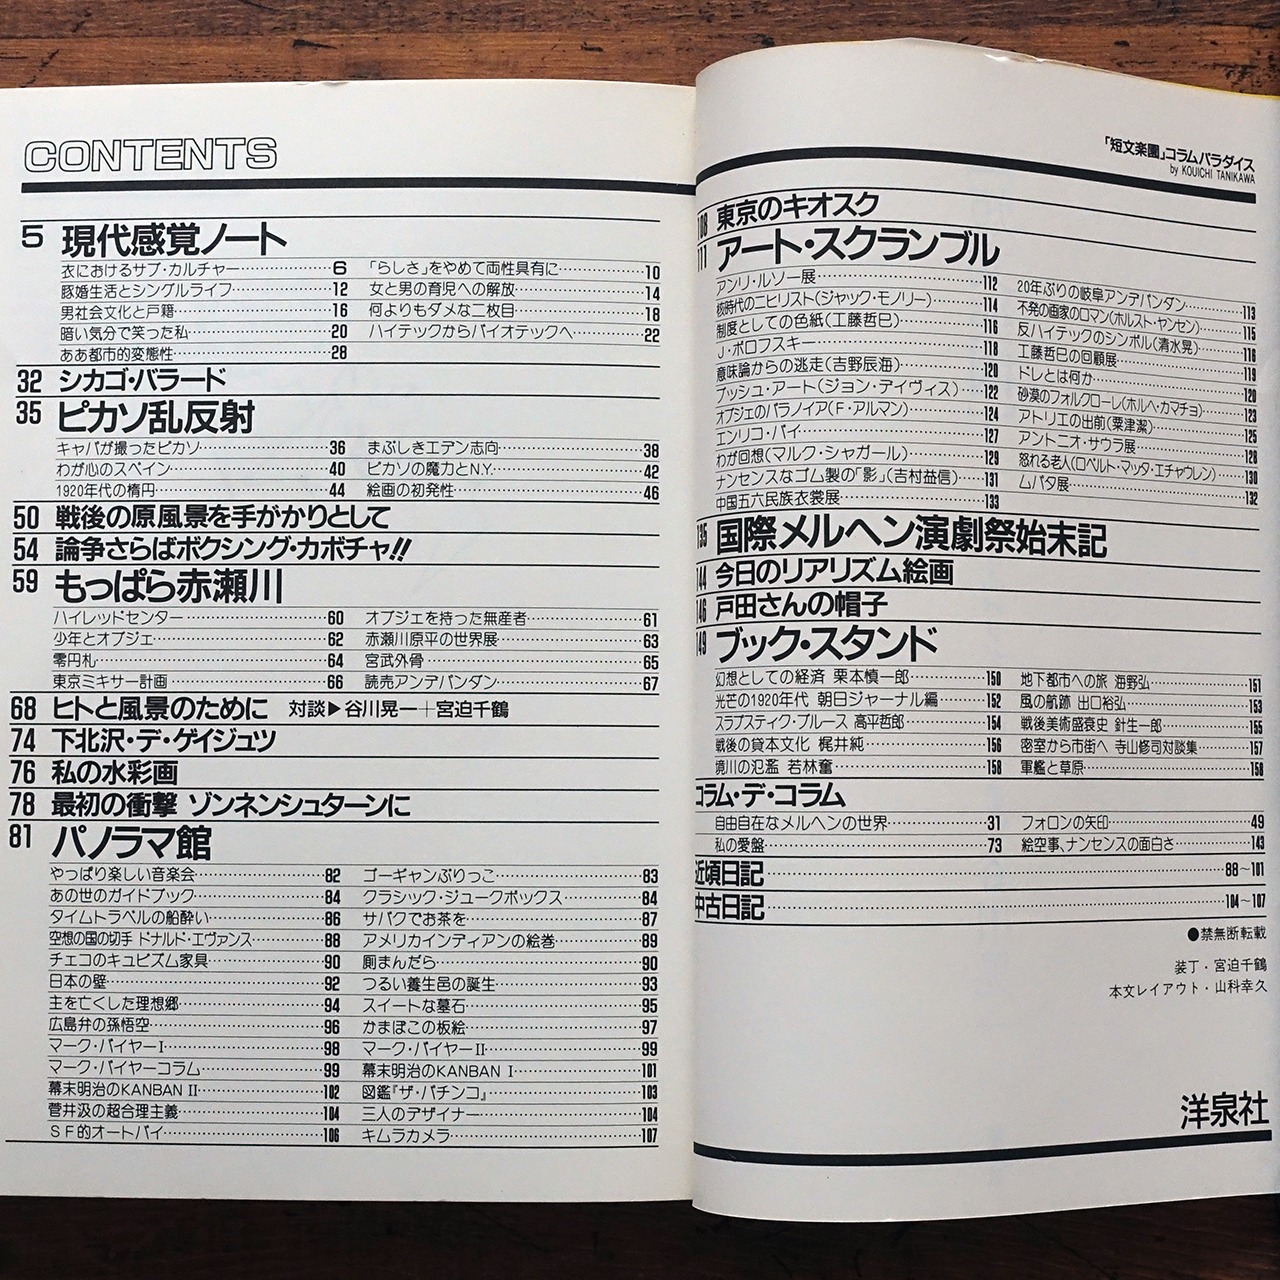 CONTENTS
5 現代感覚ノート
衣におけるサブ・カルチャー 6 「らしさ」をやめて両性具有に 10
豚婚生活とシングルライフ 12 女と男の育児への解放 14
男社会文化と戸籍 16 何よりもダメな二枚目 18
暗い気分で笑った私 20 ハイテックからバイオテックへ 22
ああ都市的変態性 28
32 シカゴ・バラード
35 ピカソ乱反射
キャパが撮ったピカソ 36 まぶしきエデン志向 38
わが心のスペイン 40 ピカソの魔力とN.Y. 42
1920年代の楕円 44 絵画の初発性 46
50 戦後の原風景を手がかりとして
54 論争さらばボクシング・カボチャ!!
59 もっぱら赤瀬川
ハイレッドセンター 60 オブジェを持った無産者 61
少年とオブジェ 62 赤瀬川原平の世界展 63
零円札 64 宮武外骨 65
東京ミキサー計画 66 読売アンデパンダン 67
68 ヒトと風景のために 対談▶谷川晃一+宮迫千鶴
74 下北沢・デ・ゲイジュツ
76 私の水彩画
78 最初の衝撃 ゾンネンシュターンに
81 パノラマ館
やっぱり楽しい音楽会 82 ゴーギャンぶりっこ 83
あの世のガイドブック 84 クラシック・ジュークボックス 84
タイムトラベルの船酔い 86 サバクでお茶を 87
空想の国の切手 ドナルド・エヴァンス 88 アメリカインディアンの絵巻 89
チェコのキュビズム家具 90 厠まんだら 90
日本の壁 92 つるい養生邑の誕生 93
主を亡くした理想郷 94 スイートな墓石 95
広島弁の孫悟空 96 かまぼこの板絵 97
マーク・バイヤーI 98 マーク・バイヤーII 99
マーク・バイヤーコラム 99 幕末明治のKANBAN I 101
幕末明治のKANBAN II 102 図鑑『ザ・パチンコ』 103
菅井汲の超合理主義 104 三人のデザイナー 104
SF的オートバイ 106 キムラカメラ 107
「短文楽園」コラムパラダイス
by KOUICHI TANIKAWA
108 東京のキオスク
111 アート・スクランブル
アンリ・ルソー展 112 20年ぶりの岐阜アンデパンダン 113
核時代のニヒリスト(ジャック・モノリー) 114 不発の画家のロマン(ホルスト・ヤンセン) 115
制度としての色紙(工藤哲巳) 116 反ハイテックのシンボル(清水晃) 116
J・ボロフスキー 118 工藤哲巳の回顧展 119
意味論からの逃走(吉野辰海) 120 ドレとは何か 120
プッシュ・アート(ジョン・デイヴィス) 122 砂漠のフォルクローレ(ホルヘ・カマチョ) 123
オブジェのパラノイア(F・アルマン) 124 アトリエの出前(粟津潔) 125
エンリコ・バイ 127 アントニオ・サウラ展 128
わが回想(マルク・シャガール) 129 怒れる老人(ロベルト・マッタ・エチャウレン) 130
ナンセンスなゴム製の「影」(吉村益信) 131 ムパタ展 132
中国五六民族衣裳展 133
135 国際メルヘン演劇祭始末記
144 今日のリアリズム絵画
146 戸田さんの帽子
149 ブック・スタンド
幻想としての経済 栗本慎一郎 150 地下都市への旅 海野弘 151
光芒の1920年代 朝日ジャーナル編 152 風の航跡 出口裕弘 153
スラプスティク・ブルース 高平哲郎 154 戦後美術盛衰史 針生一郎 155
戦後の貸本文化 梶井純 156 密室から市街へ 寺山修司対談集 157
境川の氾濫 若林奮 158 軍艦と草原 158
コラム・デ・コラム
自由自在なメルヘンの世界 31 フォロンの矢印 49
私の愛盤 73 絵空事、ナンセンスの面白さ 143
近頃日記 88〜101
中古日記 104〜107
●禁無断転載
装丁・宮迫千鶴
本文レイアウト・山科幸久
洋泉社